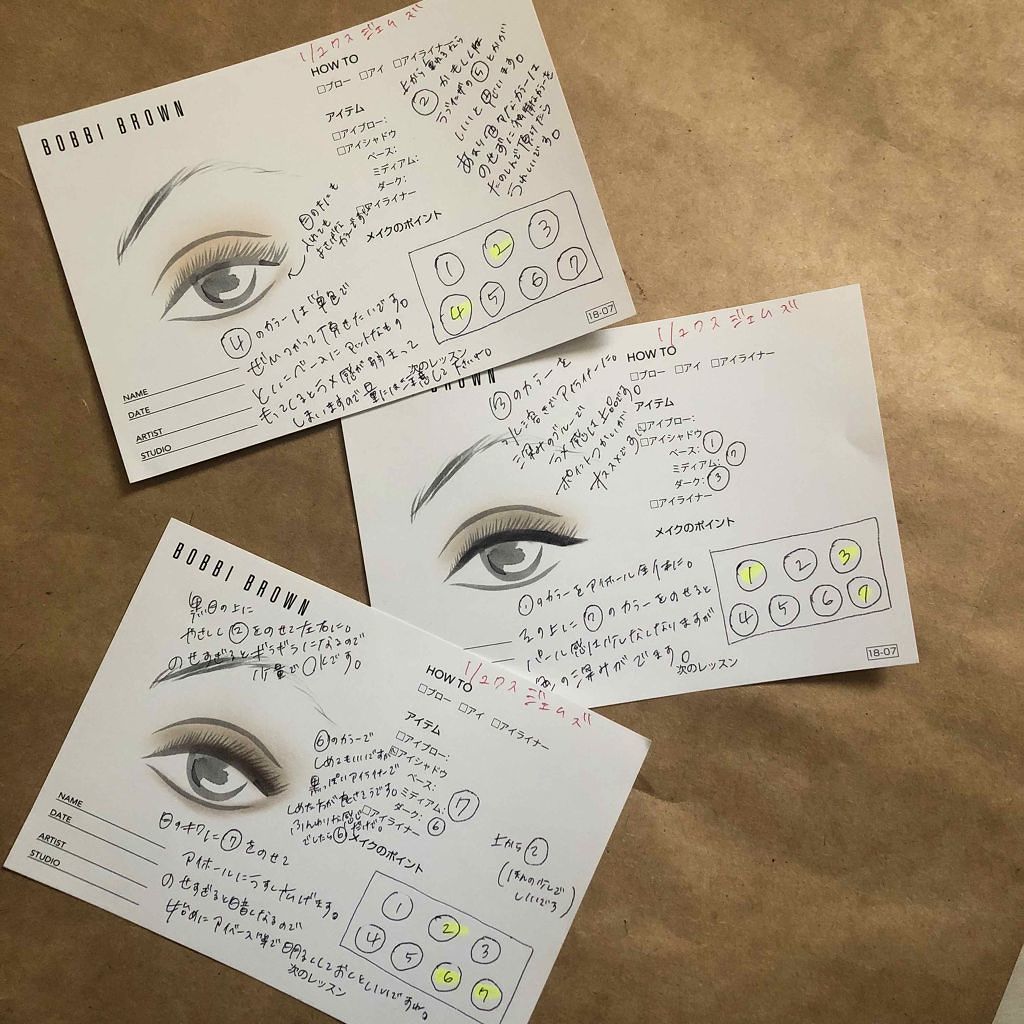 リュクス ジェムズ
BOBBI BROWN
HOW TO
□ブロー □アイ □アイライナー
アイテム
□アイブロー:
□アイシャドウ
ベース:
ミディアム:
ダーク:
□アイライナー
メイクのポイント
上から重ねるなら
②かもしくは
⑤とかが
いいと思います。
カラーは
のせずに
たのしんで頂けたら
うれしいです。
目の下にも
入れても
カラーです
① ② ③
④ ⑤ ⑥ ⑦
④のカラーは単色で
ぜひつかって頂きたいです。
とくにベースにマットなもの
もってくるとラメ感が弱まって
しまいますので量には注意して下さいね。
次のレッスン
NAME
DATE
ARTIST
STUDIO
18-07
リュクス ジェムズ
BROWN
HOW TO
□ブロー □アイ □アイライナー
アイテム
□アイブロー:
□アイシャドウ
ベース: ①
ミディアム: ⑦
ダーク: ③
□アイライナー
メイクのポイント
③のカラーを
水に溶いてアイライナーに。
深みのブルーで
ラメ感は上品です。
ポイントづかいが
オススメです
① ② ③
④ ⑤ ⑥ ⑦
①のカラーをアイホール全体に。
その上に⑦のカラーをのせると
パール感は少しなくなりますが
の深みがでます。
次のレッスン
18-07
リュクス ジェムズ
BOBBI BROWN
HOW TO
□ブロー □アイ □アイライナー
アイテム
□アイブロー:
□アイシャドウ
ベース:
ミディアム: ⑦
ダーク: ⑥
□アイライナー
メイクのポイント
黒目の上に
やさしく②をのせて左右に。
のせすぎるとギラギラになるので
少量でOKです。
⑥のカラーで
しめてもいいですが
黒っぽいアイライナーで
しめた方が良さそうです。
ふんわりな感じ
でしたら⑥だけで。
上から②
(ほんの少しで
いいです)
目のキワに⑦をのせて
アイホールにうすく広げます。
のせすぎると暗くなるので
始めにアイベース等で明るくしておくといいですね。
次のレッスン
① ② ③
④ ⑤ ⑥ ⑦
NAME
DATE
ARTIST
STUDIO